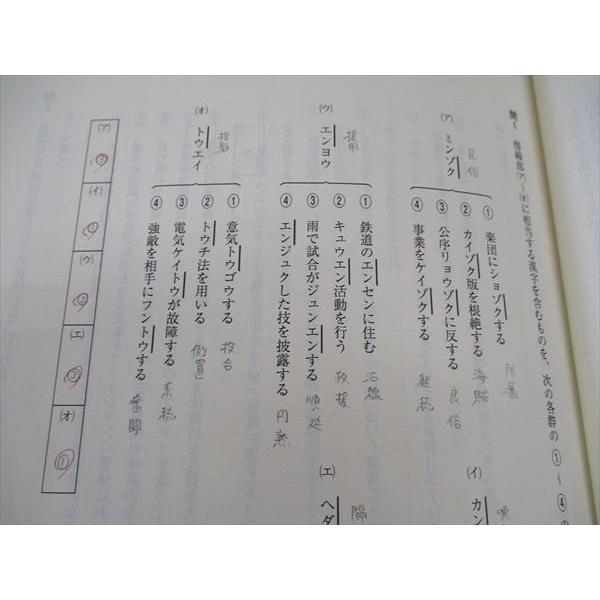 問1 傍線部㋐~㋔に相当する漢字を含むものを、次の各群の①~④の
㋐ ミンゾク
民俗
① 楽団にショゾクする
所属
② カイゾク版を根絶する
海賊
③ 公序リョウゾクに反する
良俗
④ 事業をケイゾクする
継続
㋑ カン
喚
㋒ エンヨウ
援用
① 鉄道のエンセンに住む
沿線
② キュウエン活動を行う
救援
③ 雨で試合がジュンエンする
順延
④ エンジュクした技を披露する
円熟
㋓ ヘダ
隔
㋔ トウエイ
投影
① 意気トウゴウする
投合
② トウチ法を用いる
倒置
③ 電気ケイトウが故障する
系統
④ 強敵を相手にフントウする
奮闘
㋐ ③
㋑
㋒ ②
㋓ ③
㋔ ①